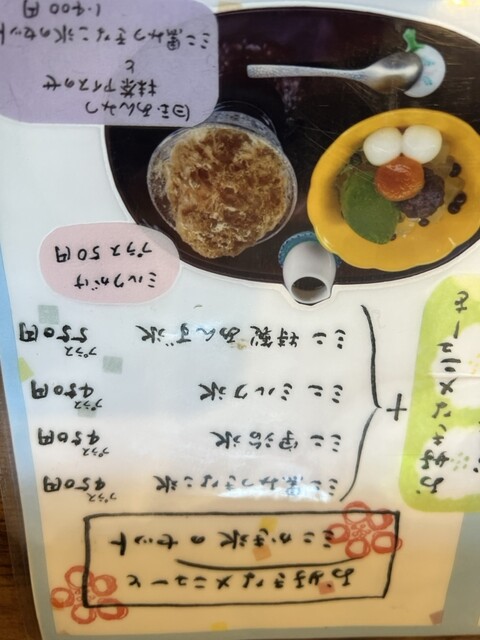 お好きなメニューと
ミニかき氷のセット
お好きなメニューを
+
ミニ黒みつきなこ氷 プラス450円
ミニ宇治氷 プラス450円
ミニミルク氷 プラス450円
ミニ特製あんず氷 プラス550円
ミルクがけ
プラス50円
白玉あんみつ
抹茶アイスのせ
と
ミニ黒みつきなこ氷のセット
1,400円